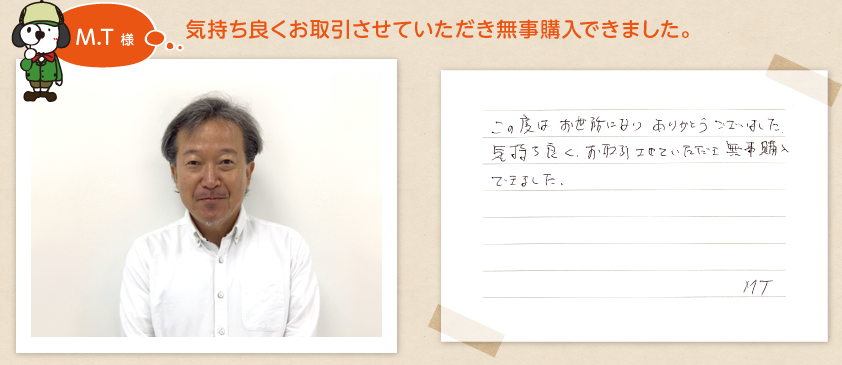 M.T 様
気持ち良くお取引させていただき無事購入できました。
この度は お世話になり ありがとうございました.
気持ち良く、お取引させていただき無事購入
できました.
MT